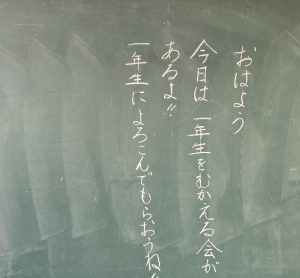 おはよう
今日は一年生をむかえる会が
あるよ!!
一年生によろこんでもらおうね